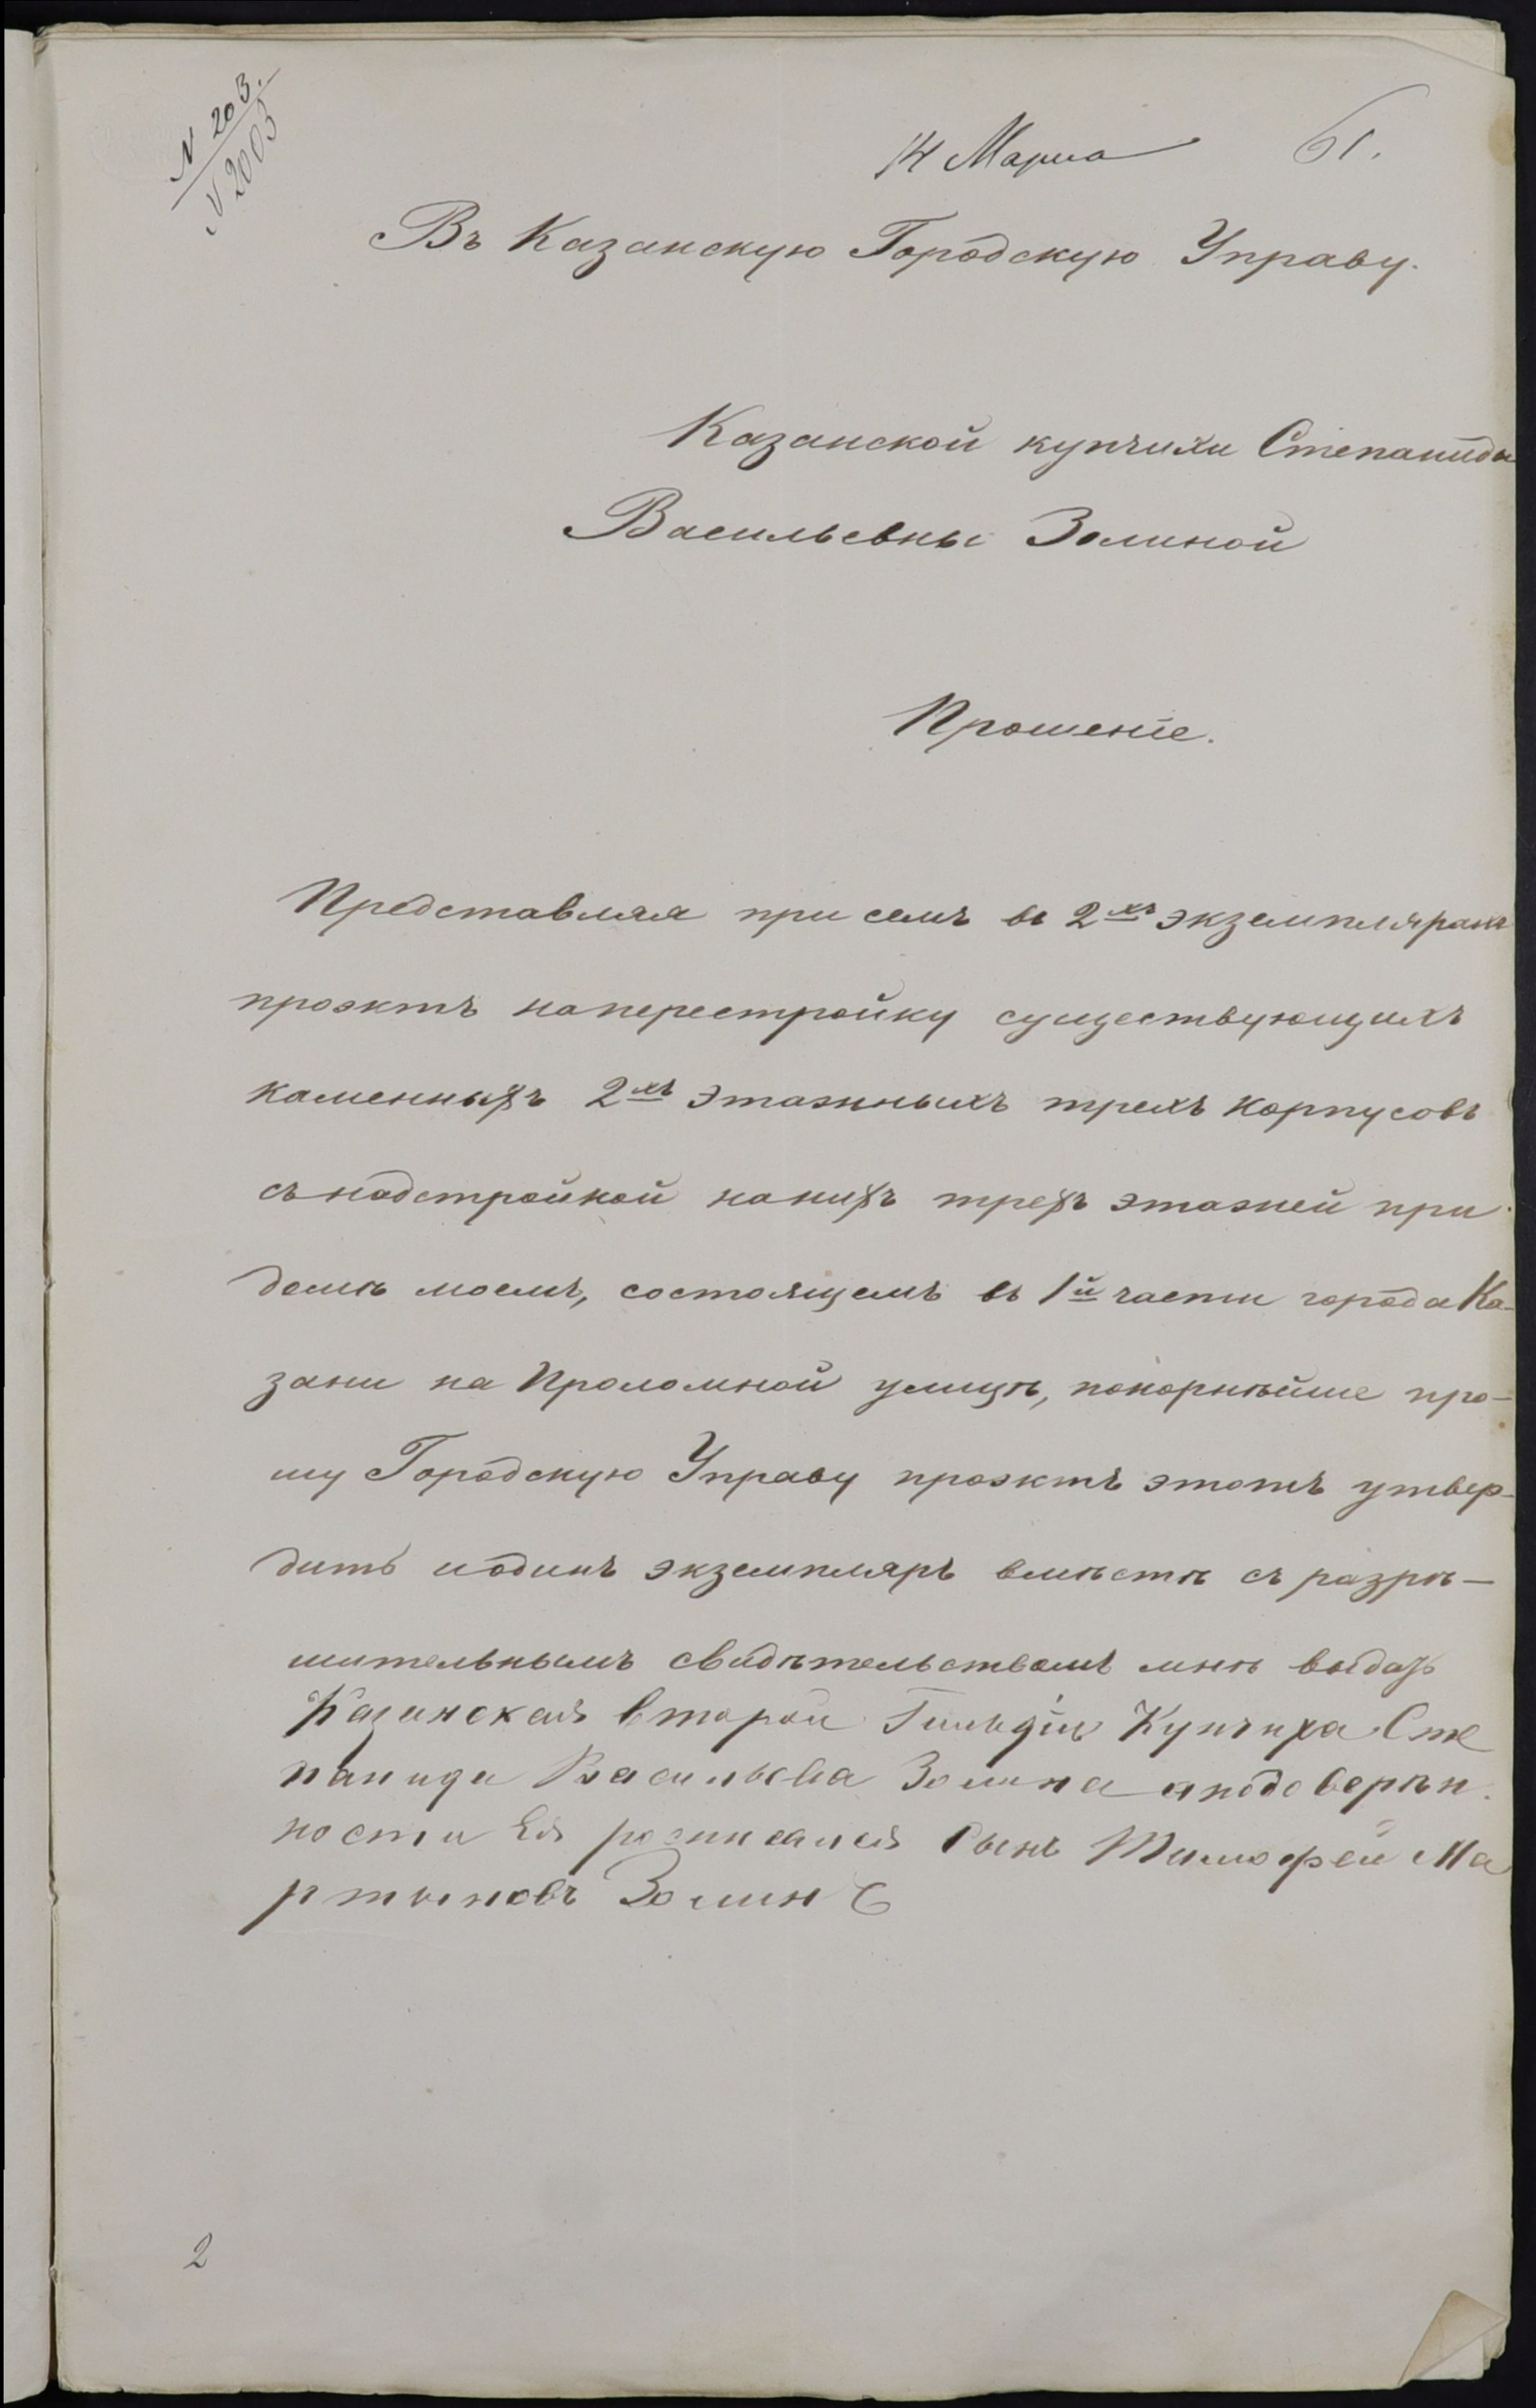 N 203.
N 2003
14 Марта
61.
Въ Казанскую Городскую Управу.
Казанской купчихи Степаниды
Васильевны Золиной
Прошеніе.
Представляя при семъ въ 2хъ экземплярахъ
проэктъ на перестройку существующихъ
каменныхъ 2хъ этажныхъ трехъ корпусовъ
съ надстройкой на нихъ трехъ этажей при
домѣ моемъ, состоящемъ въ 1й части города Ка-
зани на Проломной улицѣ, покорнѣйше про-
шу Городскую Управу проэктъ этотъ утвер-
дить и одинъ экземпляръ вмѣстѣ съ разрѣ-
шительнымъ свидѣтельствомъ мнѣ выдать
Казанская второй Гильдіи Купчиха Сте
панида Васильева Золина а по доверѣн
ности Ея росписался Сынъ Тимофей Ма
ртыновъ Золинъ
2